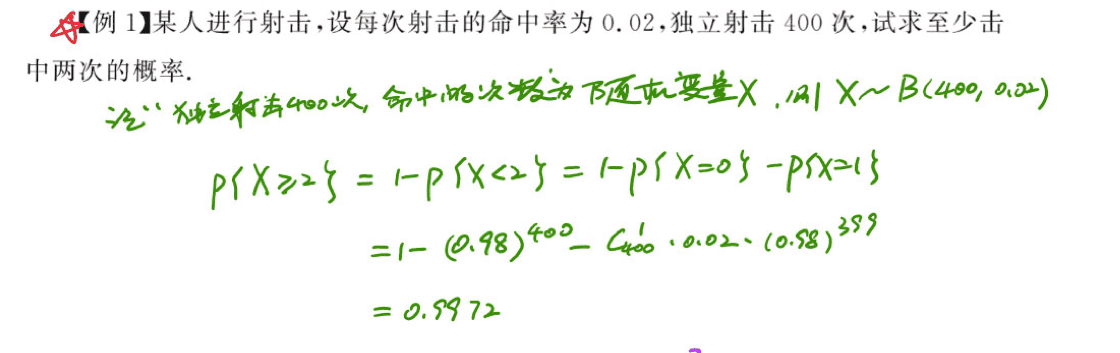 【例 1】某人进行射击,设每次射击的命中率为 0.02,独立射击 400 次,试求至少击
中两次的概率.
设"独立射击400次,命中的次数为随机变量X,则 X~B(400, 0.02)
P{X≥2} = 1-P{X<2} = 1-P{X=0}-P{X=1}
=1-(0.98)⁴⁰⁰-C¹₄₀₀·0.02·(0.98)³⁹⁹
= 0.9972